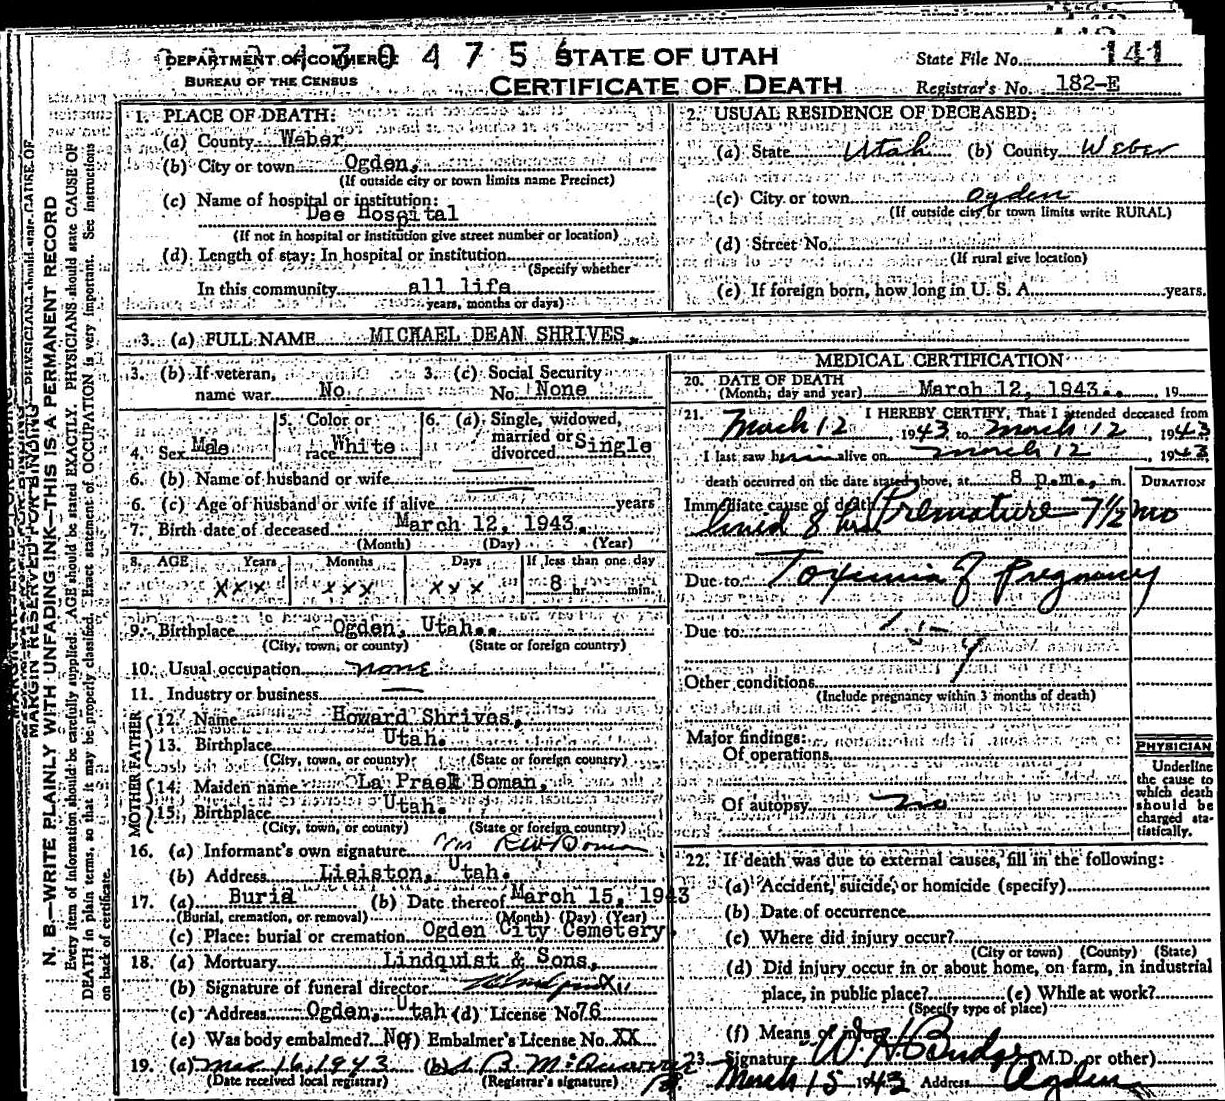 DEPARTMENT OF COMMERCE
BUREAU OF THE CENSUS
4 3 0 4 7 5
STATE OF UTAH
CERTIFICATE OF DEATH
State File No. 141
Registrar's No. 182-E
MARGIN RESERVED FOR BINDING
N. B.—WRITE PLAINLY WITH UNFADING INK—THIS IS A PERMANENT RECORD
Every item of information should be carefully supplied. AGE should be stated EXACTLY. PHYSICIANS should state CAUSE OF
DEATH in plain terms, so that it may be properly classified. Exact statement of OCCUPATION is very important. See instructions
on back of certificate.
1. PLACE OF DEATH:
(a) County Weber
(b) City or town Ogden,
(If outside city or town limits name Precinct)
(c) Name of hospital or institution:
Dee Hospital
(If not in hospital or institution give street number or location)
(d) Length of stay: In hospital or institution
(Specify whether
In this community all life
years, months or days)
2. USUAL RESIDENCE OF DECEASED:
(a) State Utah (b) County Weber
(c) City or town Ogden
(If outside city or town limits write RURAL)
(d) Street No.
(If rural give location)
(e) If foreign born, how long in U. S. A. years.
3. (a) FULL NAME MICHAEL DEAN SHRIVES.
3. (b) If veteran, name war No. 3. (c) Social Security No. None
4. Sex Male 5. Color or race White 6. (a) Single, widowed, married or divorced Single
6. (b) Name of husband or wife
6. (c) Age of husband or wife if alive years
7. Birth date of deceased March 12, 1943.
(Month) (Day) (Year)
8. AGE Years Months Days If less than one day
XXX XXX XXX 8 hr. min.
9. Birthplace Ogden, Utah.
(City, town, or county) (State or foreign country)
10. Usual occupation none
11. Industry or business
FATHER
12. Name Howard Shrives,
13. Birthplace Utah.
(City, town, or county) (State or foreign country)
MOTHER
14. Maiden name La Praek Boman,
15. Birthplace Utah.
(City, town, or county) (State or foreign country)
16. (a) Informant's own signature Mrs R W Boman
(b) Address Lisiston, Utah.
17. (a) Burial (b) Date thereof March 15, 1943
(Burial, cremation, or removal) (Month) (Day) (Year)
(c) Place: burial or cremation Ogden City Cemetery.
18. (a) Mortuary Lindquist & Sons,
(b) Signature of funeral director
(c) Address Ogden, Utah (d) License No 76
(e) Was body embalmed? No (f) Embalmer's License No. XX
19. (a) Mar 16, 1943 (b)
(Date received local registrar) (Registrar's signature)
MEDICAL CERTIFICATION
20. DATE OF DEATH
(Month, day and year) March 12, 1943. , 19
21. I HEREBY CERTIFY, That I attended deceased from
March 12 , 1943 to March 12 , 1943
I last saw him alive on March 12 , 1943
death occurred on the date stated above, at 8 p.m. m.
DURATION
Immediate cause of death Premature 7½ mo
lived 8 hrs
Due to Toxemia of Pregnancy
Due to
Other conditions
(Include pregnancy within 3 months of death)
Major findings:
Of operations
Of autopsy no
PHYSICIAN
Underline
the cause to
which death
should be
charged sta-
tistically.
22. If death was due to external causes, fill in the following:
(a) Accident, suicide, or homicide (specify)
(b) Date of occurrence
(c) Where did injury occur?
(City or town) (County) (State)
(d) Did injury occur in or about home, on farm, in industrial
place, in public place? (e) While at work?
(Specify type of place)
(f) Means of injury
23. Signature W. H. Budge (M.D. or other)
March 15 1943 Address Ogden